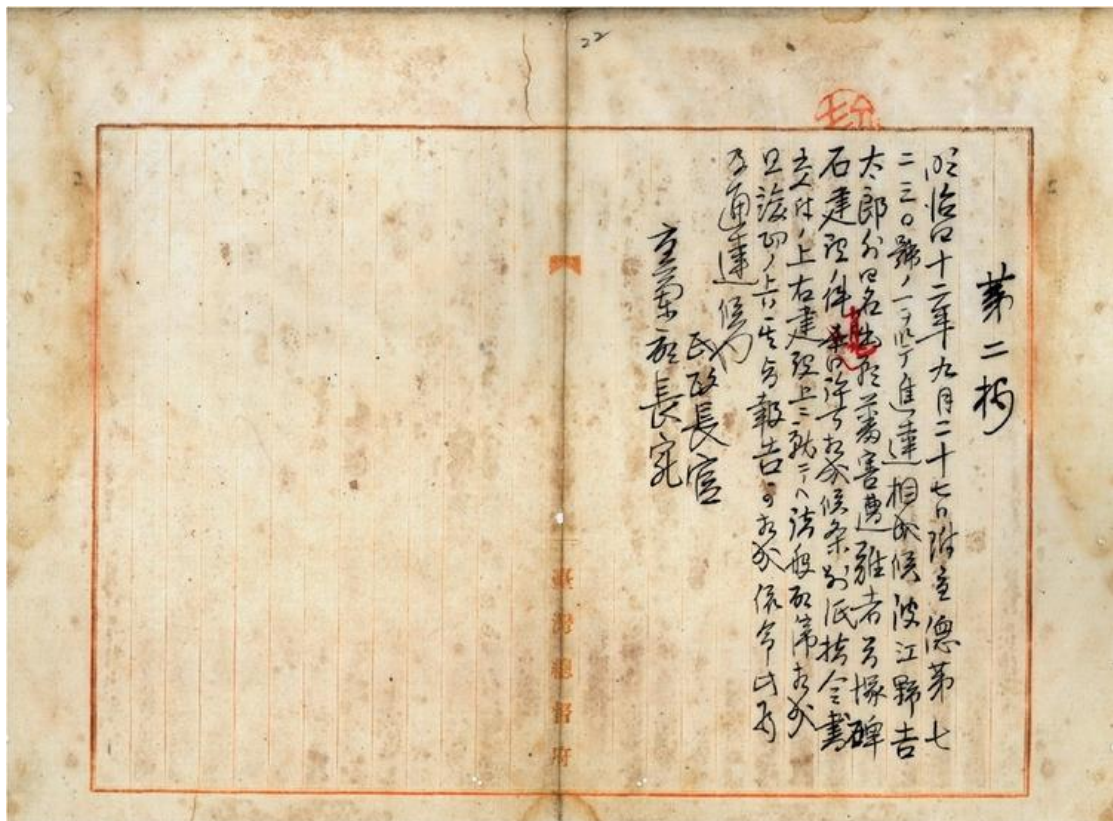 22
第二案
明治四十二年九月二十七日附宜総第七
二三〇號ノ一ヲ以テ進達相成候波江野吉
太郎外四名出願蕃害遭難者首塚碑
石建設ノ件 許可相成候条別紙指令書
交付ノ上右建設上ニ就テハ諸般 相成
且竣功ノ上ハ其旨報告可相成依命此段
及通達候也
民政長官
宜蘭廳長宛
臺灣總督府